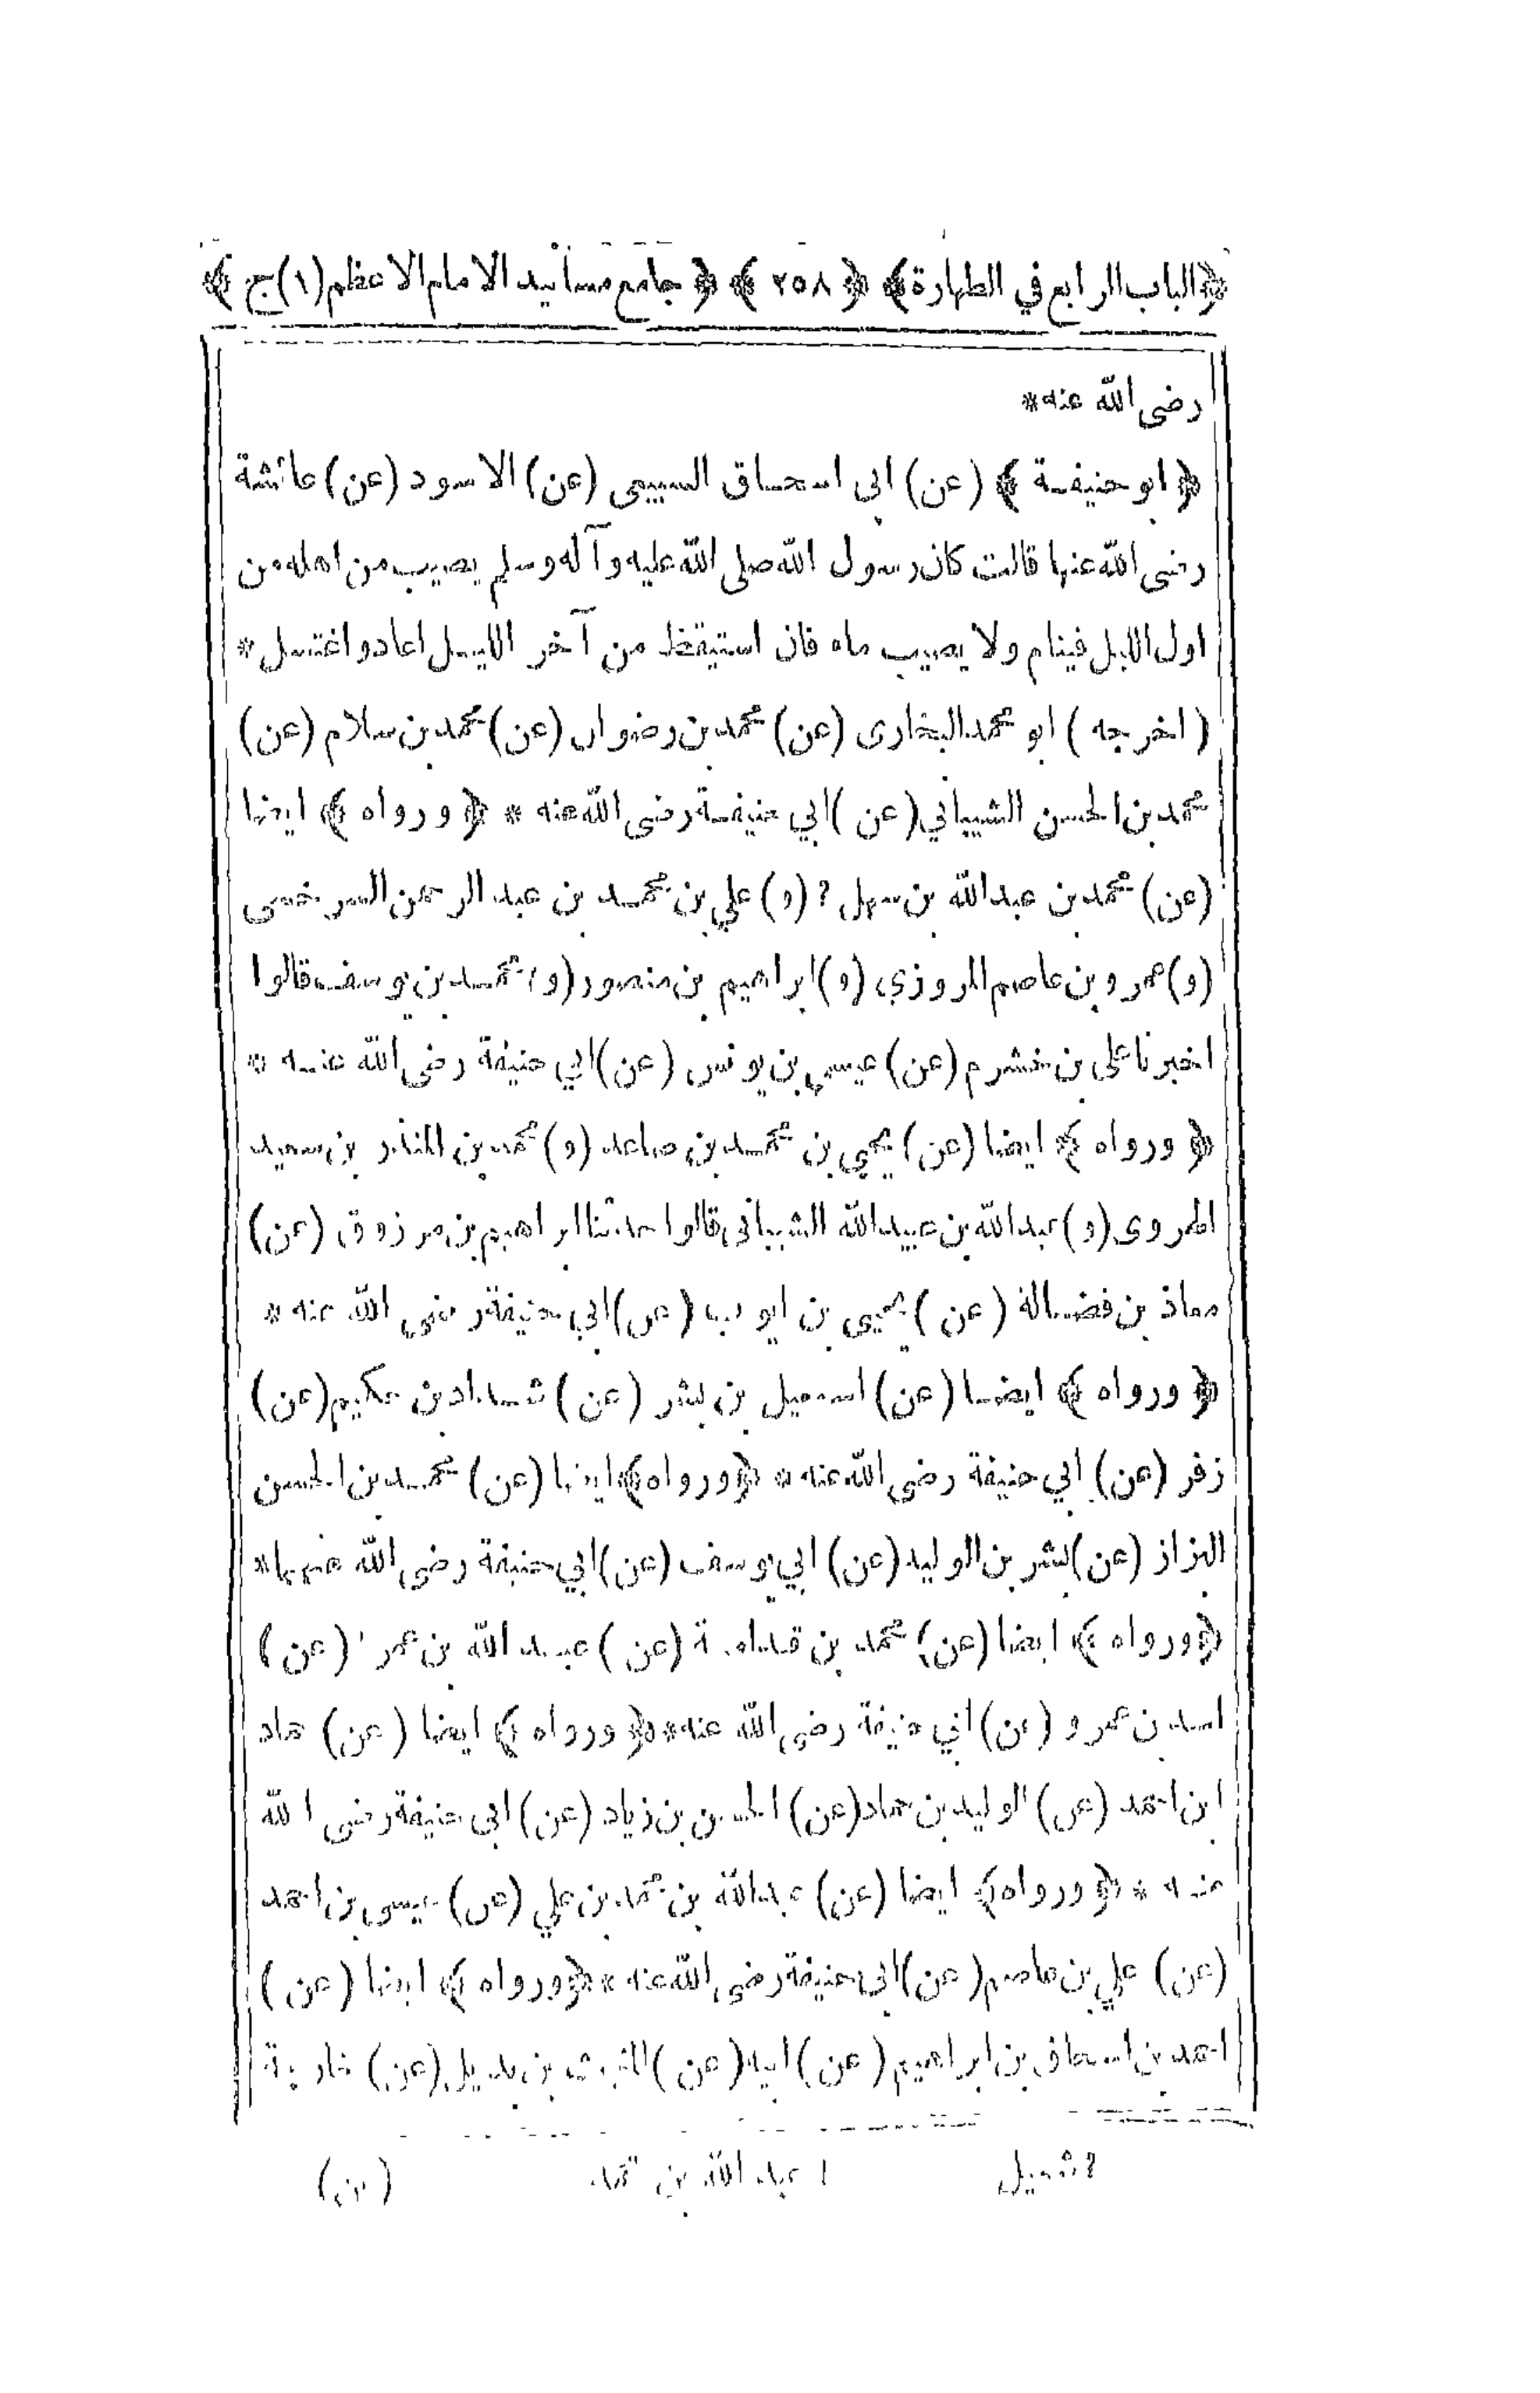 ﴿الباب الرابع في الطهارة﴾ ﴿ ٢٥٨ ﴾ ﴿ جامع مسانيد الامام الاعظم (١) ج ﴾
رضى الله عنه *
﴿ ابو حنيفة ﴾ (عن) ابى اسحاق السبيعى (عن) الاسود (عن) عائشة
رضى الله عنها قالت كان رسول الله صلى الله عليه وآله وسلم يصيب من اهله من
اول الليل فينام ولا يصيب ماء فان استيقظ من آخر الليل اعاد واغتسل *
( اخرجه ) ابو محمد البخارى (عن) محمد بن رضوان (عن) محمد بن سلام (عن)
محمد بن الحسن الشيباني (عن) ابي حنيفة رضى الله عنه * ﴿ ورواه ﴾ ايضا
(عن) محمد بن عبد الله بن سهل ٢ (و) علي بن محمد بن عبد الرحمن السرخسى
(و) عمرو بن عاصم المروزي (و) ابراهيم بن منصور (و) محمد بن يوسف قالوا
اخبرنا على بن خشرم (عن) عيسى بن يونس (عن) ابي حنيفة رضى الله عنه *
﴿ ورواه ﴾ ايضا (عن) يحيى بن محمد بن صاعد (و) محمد بن المنذر بن سعيد
الهروى (و) عبد الله بن عبيد الله الشيبانى قالوا حدثنا ابراهيم بن مرزوق (عن)
معاذ بن فضالة (عن) يحيى بن ايوب (عن) ابي حنيفة رضى الله عنه *
﴿ ورواه ﴾ ايضا (عن) اسمعيل بن بشر (عن) شداد بن حكيم (عن)
زفر (عن) ابي حنيفة رضى الله عنه * ﴿ ورواه ﴾ ايضا (عن) محمد بن الحسن
البزاز (عن) بشر بن الوليد (عن) ابي يوسف (عن) ابي حنيفة رضى الله عنهما *
﴿ ورواه ﴾ ايضا (عن) محمد بن قدامة (عن) عبد الله بن عمر ١ (عن)
اسد بن عمرو (عن) ابي حنيفة رضى الله عنه * ﴿ ورواه ﴾ ايضا (عن) حماد
ابن احمد (عن) الوليد بن حماد (عن) الحسن بن زياد (عن) ابى حنيفة رضى الله
عنه * ﴿ ورواه ﴾ ايضا (عن) عبد الله بن محمد بن علي (عن) عيسى بن احمد
(عن) علي بن عاصم (عن) ابى حنيفة رضى الله عنه * ﴿ ورواه ﴾ ايضا (عن)
احمد بن اسحاق بن ابراهيم (عن) ابيه (عن) بن بديل (عن)
١ عبد الله بن محمد